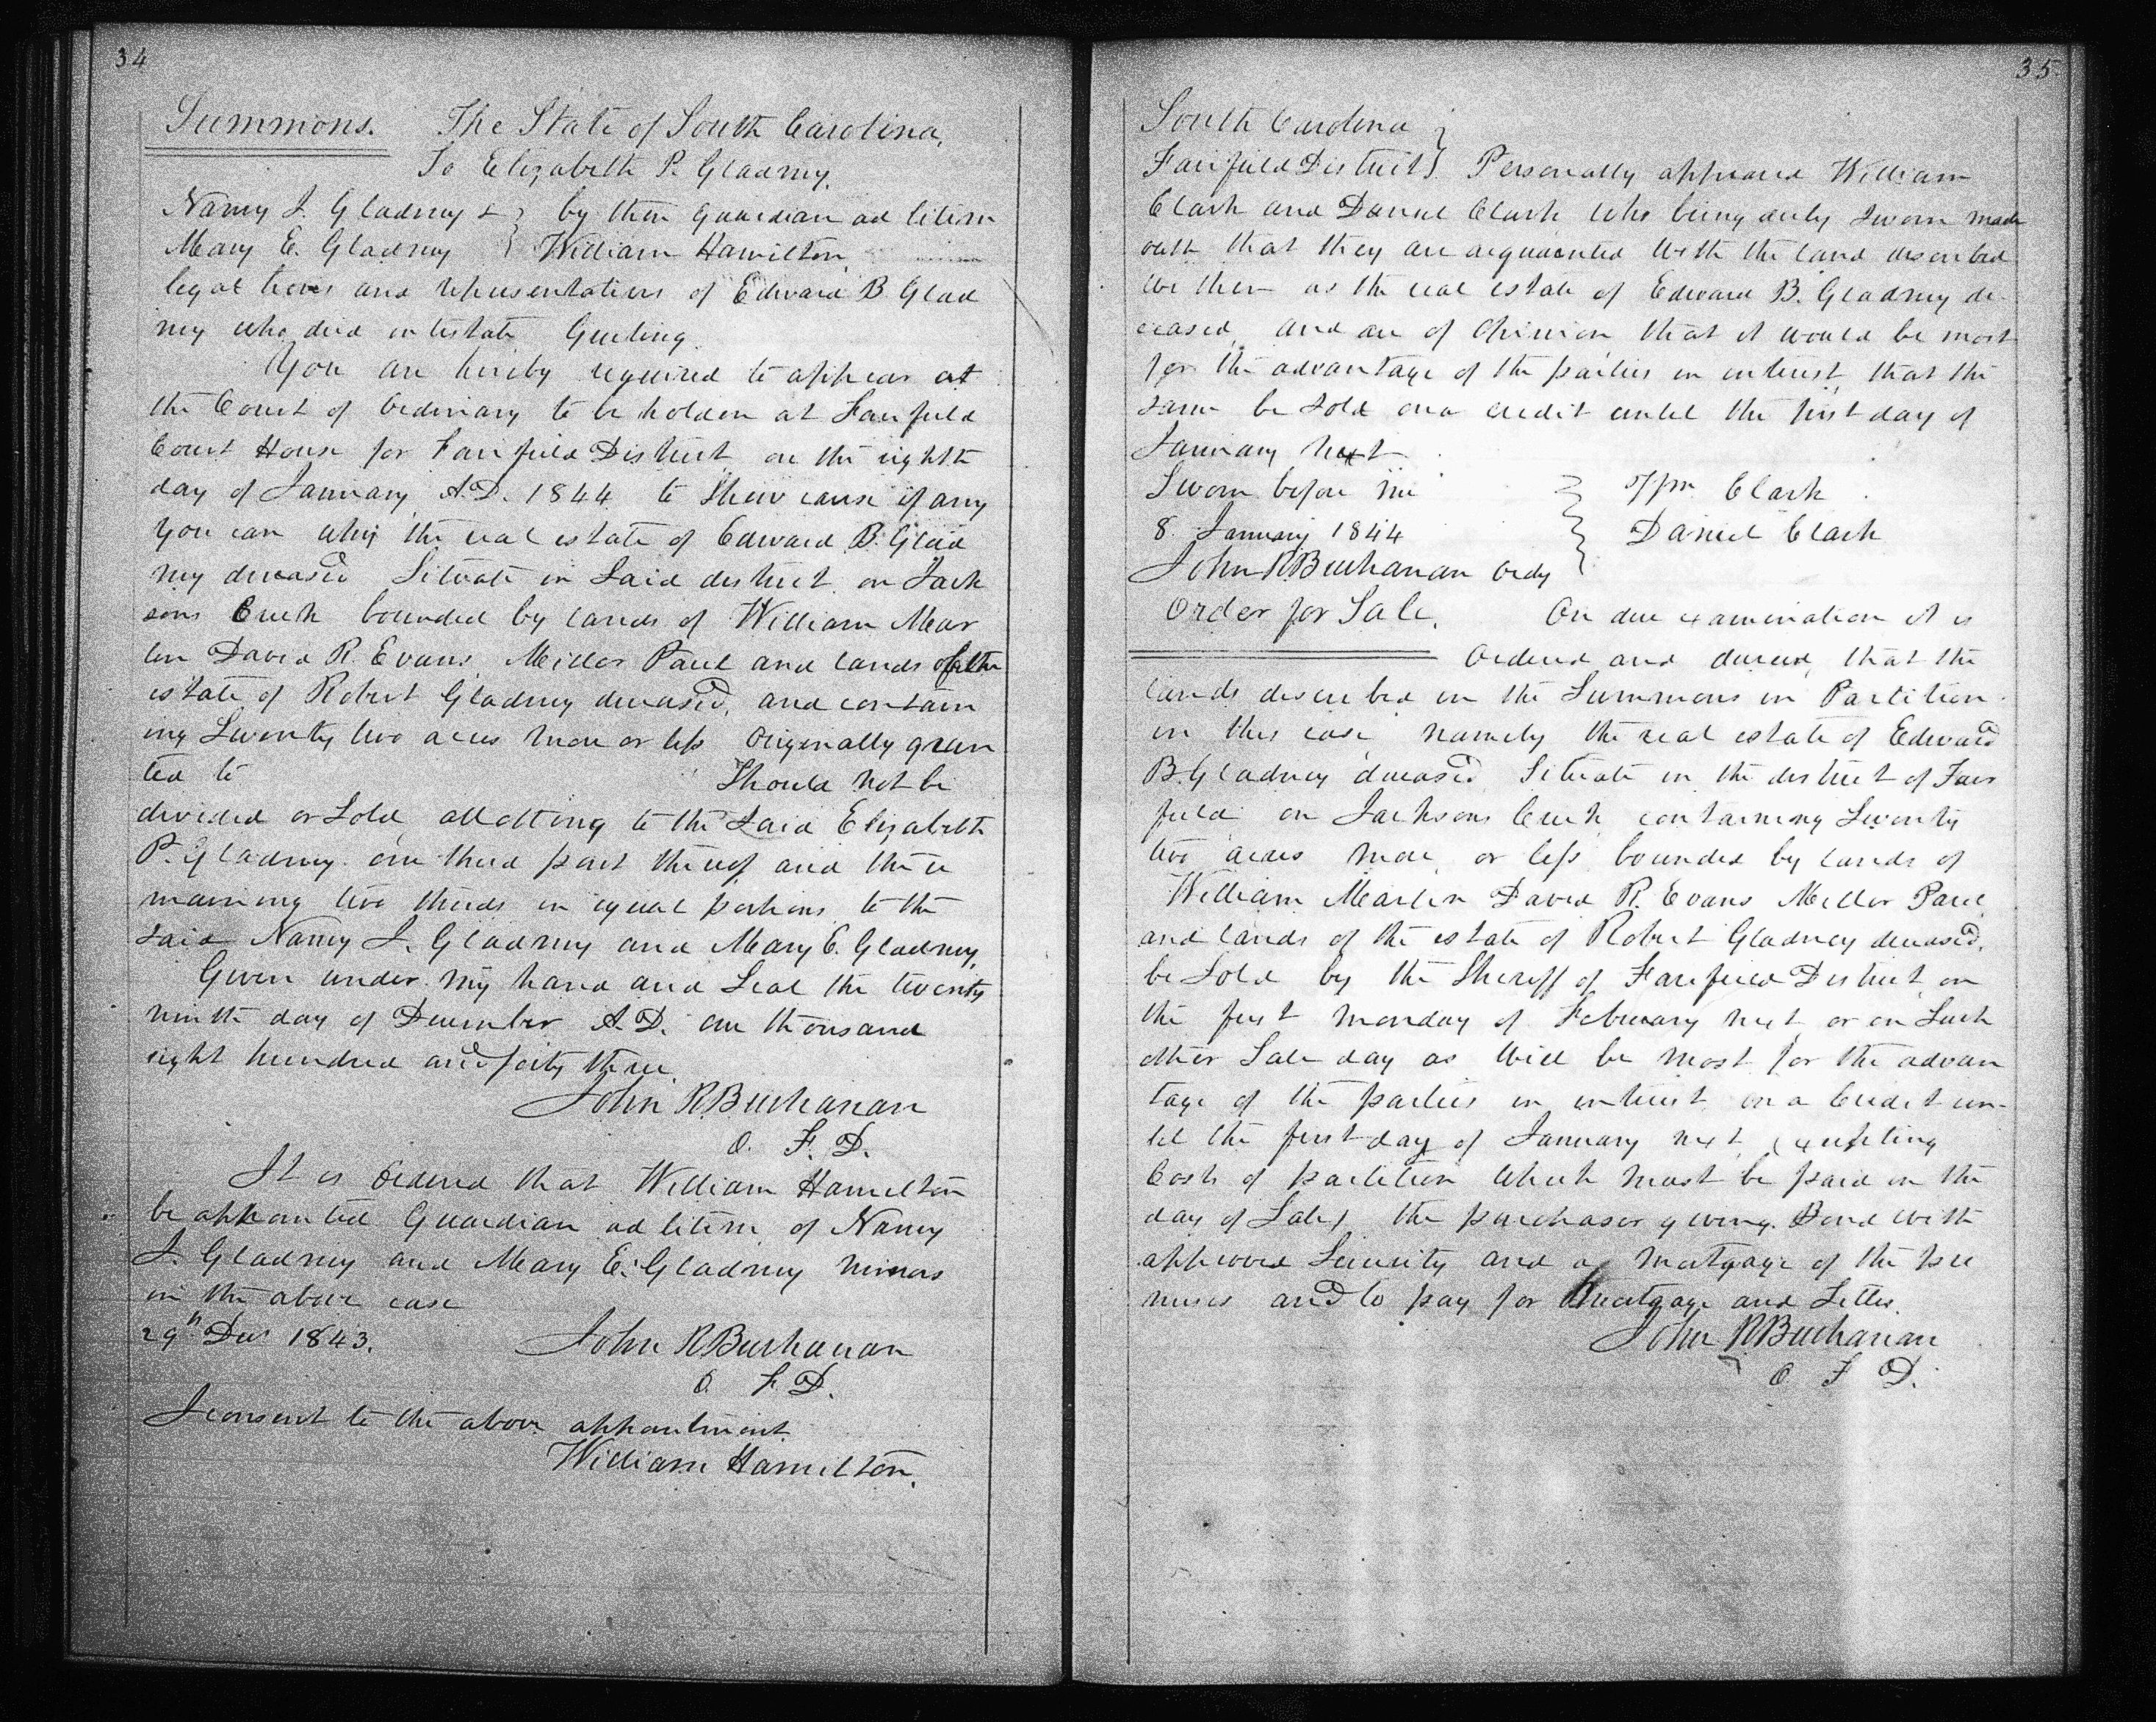 34
Summons. The State of South Carolina,
To Elizabeth P. Gladney,
Nancy J. Gladney & } by their Guardian ad litem
Mary E. Gladney } William Hamilton
legal heirs and representatives of Edward B. Glad
ney who died intestate Greeting.
You are hereby required to appear at
the Court of Ordinary to be holden at Fairfield
Court House for Fairfield District on the eighth
day of January A.D. 1844 to Shew cause if any
you can why the real estate of Edward B. Glad
ney deceased Situate in Said district on Jack
sons Creek bounded by lands of William Mar
tin David R. Evans Miller Paul and lands of the
estate of Robert Gladney deceased, and contain
ing Twenty two acres more or less Originally gran
ted to Should not be
divided or Sold allotting to the Said Elizabeth
P. Gladney one third part thereof and the re
maining two thirds in equal portions to the
said Nancy J. Gladney and Mary E. Gladney,
Given under my hand and Seal the twenty
ninth day of December A.D. one thousand
eight hundred and forty three.
John R Buchanan
O. F. D.
It is Ordered that William Hamilton
be appointed Guardian ad litem of Nancy
J. Gladney and Mary E. Gladney minors
in the above case
29th Decr 1843. John R Buchanan
O. F. D.
I consent to the above appointment
William Hamilton.
35
South Carolina }
Fairfield District } Personally appeared William
Clark and Daniel Clark who being duly Sworn made
oath that they are acquainted with the land described
within as the real estate of Edward B. Gladney de-
ceased, and are of Opinion that it would be most
for the advantage of the parties in interest that the
same be Sold on a credit until the first day of
January next
Sworn before me } Wm Clark
8. January 1844 } Daniel Clark
John R. Buchanan Ordy }
Order for Sale. On due examination it is
Ordered and decreed that the
lands described in the Summons in Partition
in this case namely the real estate of Edward
B. Gladney deceased Situate in the district of Fair
field on Jacksons Creek containing Twenty
two acres more or less bounded by lands of
William Martin David R. Evans Miller Paul
and lands of the estate of Robert Gladney deceased,
be Sold by the Sheriff of Fairfield District on
the first monday of February next or on Such
other Sale day as will be most for the advan
tage of the parties in interest on a Credit un-
til the first day of January next (excepting
Costs of partition which must be paid on the
day of Sale) the purchaser giving Bond with
approved Security and a mortgage of the pre
mises and to pay for Mortgage and Titles.
John R Buchanan
O F D.